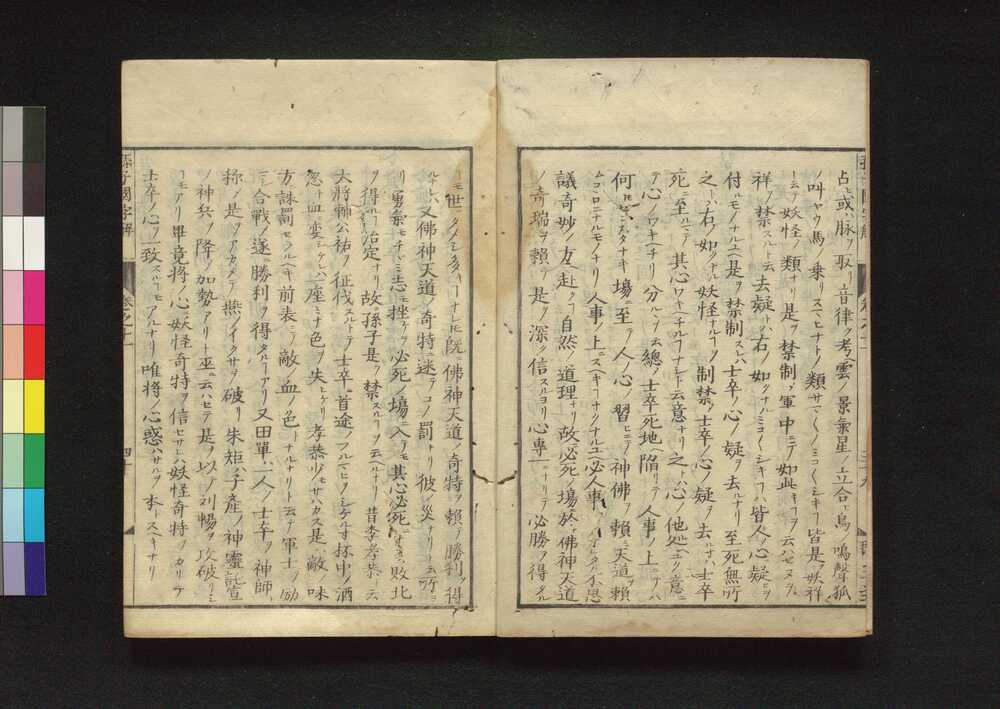 占ヒ或ハ脉ヲ取リ音律ヲ考ヘ雲ノ景氣星ノ立合ヒ鳥ノ鳴聲狐
ノ叫ヤウ馬ノ乗リスマヒナトノ類サマ〱ノミコ〱シキコハ皆是ヲ妖祥
ト云テ妖怪ノ類ナリ是ヲ禁制シ軍中ニテ如此キコヲ云ハセヌヲ
祥ヲ禁スルト云去疑トハ右ノ如クナルミコ〱シキコハ皆人ノ心疑ヒヲ
付ルモノナルユヘ是ヲ禁制スレハ士卒ノ心ノ疑ヲ去ルナリ至死無所
之トハ右ノ如クナル妖怪ナルコノ制禁シ士卒ノ心ノ疑ヲ去レハ士卒
死ニ至ルマテ其心ワキヘチルコナシト云意ナリ之ハ心ノ他処ニユク意ニ
テ心ノワキヘチリ分ルヽヲ云總シテ士卒死地ニ陥リテ人事ノ上ニテ
何トモセンスヘナキ場ニ至テハ人ノ心ノ習ヒニテ神佛ヲ賴ミ天道ヲ賴
ムコヽロニナルモノナリ人事ノ上ニスヘキコナキユヘ必人事ノ
議奇妙ノ方ヘ赴クコ自然ノ道理ナリ故ニ必死ノ場ニ於テ佛神天道
ノ奇瑞ヲ賴テ是ヲ深ク信スルヨリ心專一ニナリテ必勝ヲ得タル
コモ世ニタメシ多キコナレトモ既ニ佛神天道ノ奇特ヲ賴テ勝利ヲ得
又佛神天道ノ奇特ニ迷テコノ罰ナリ彼ノ災ナリト云所ニ
リ勇氣モチヽミ志モ挫ケテ必死ノ場ニ入テモ其心必死ニナラス敗北
ヲ得ルコ治定ナリ故ニ孫子是ヲ禁スルコヲ云ルナリ昔李孝恭ト云
大將輔公祏ヲ征伐スルトテ士卒ノ首途ノフルマヒヲシケルニ杯中ノ酒
忽ニ血ニ変シケレハ一座ミナ色ヲ失ヒケリ孝恭少モサハカス是ハ敵ノ味
方ニ誅罰セラルヘキ前表ニテ敵ノ血ノ色トナルナリト云テ軍士ヲ励
シ合戰シテ遂ニ勝利ヲ得タルコアリ又田單ハ一人ノ士卒ヲ神師ト
称シ是ヲアカメテ燕ノイクサヲ破リ朱矩ハ子產ノ神靈託宣シ
テ神兵ヲ降シ加勢アリト巫ニ云ハセテ是ヲ以テ刈暢ヲ攻破リシ
コモアリ畢竟將ノ心ニ妖怪奇特ヲ信セサレハ妖怪奇特ヲカリテ
士卒ノ心ヲ一致スルコモアルナリ唯將ノ心惑ハサルヲ本トスヘキナリ
孫子國字解
四十